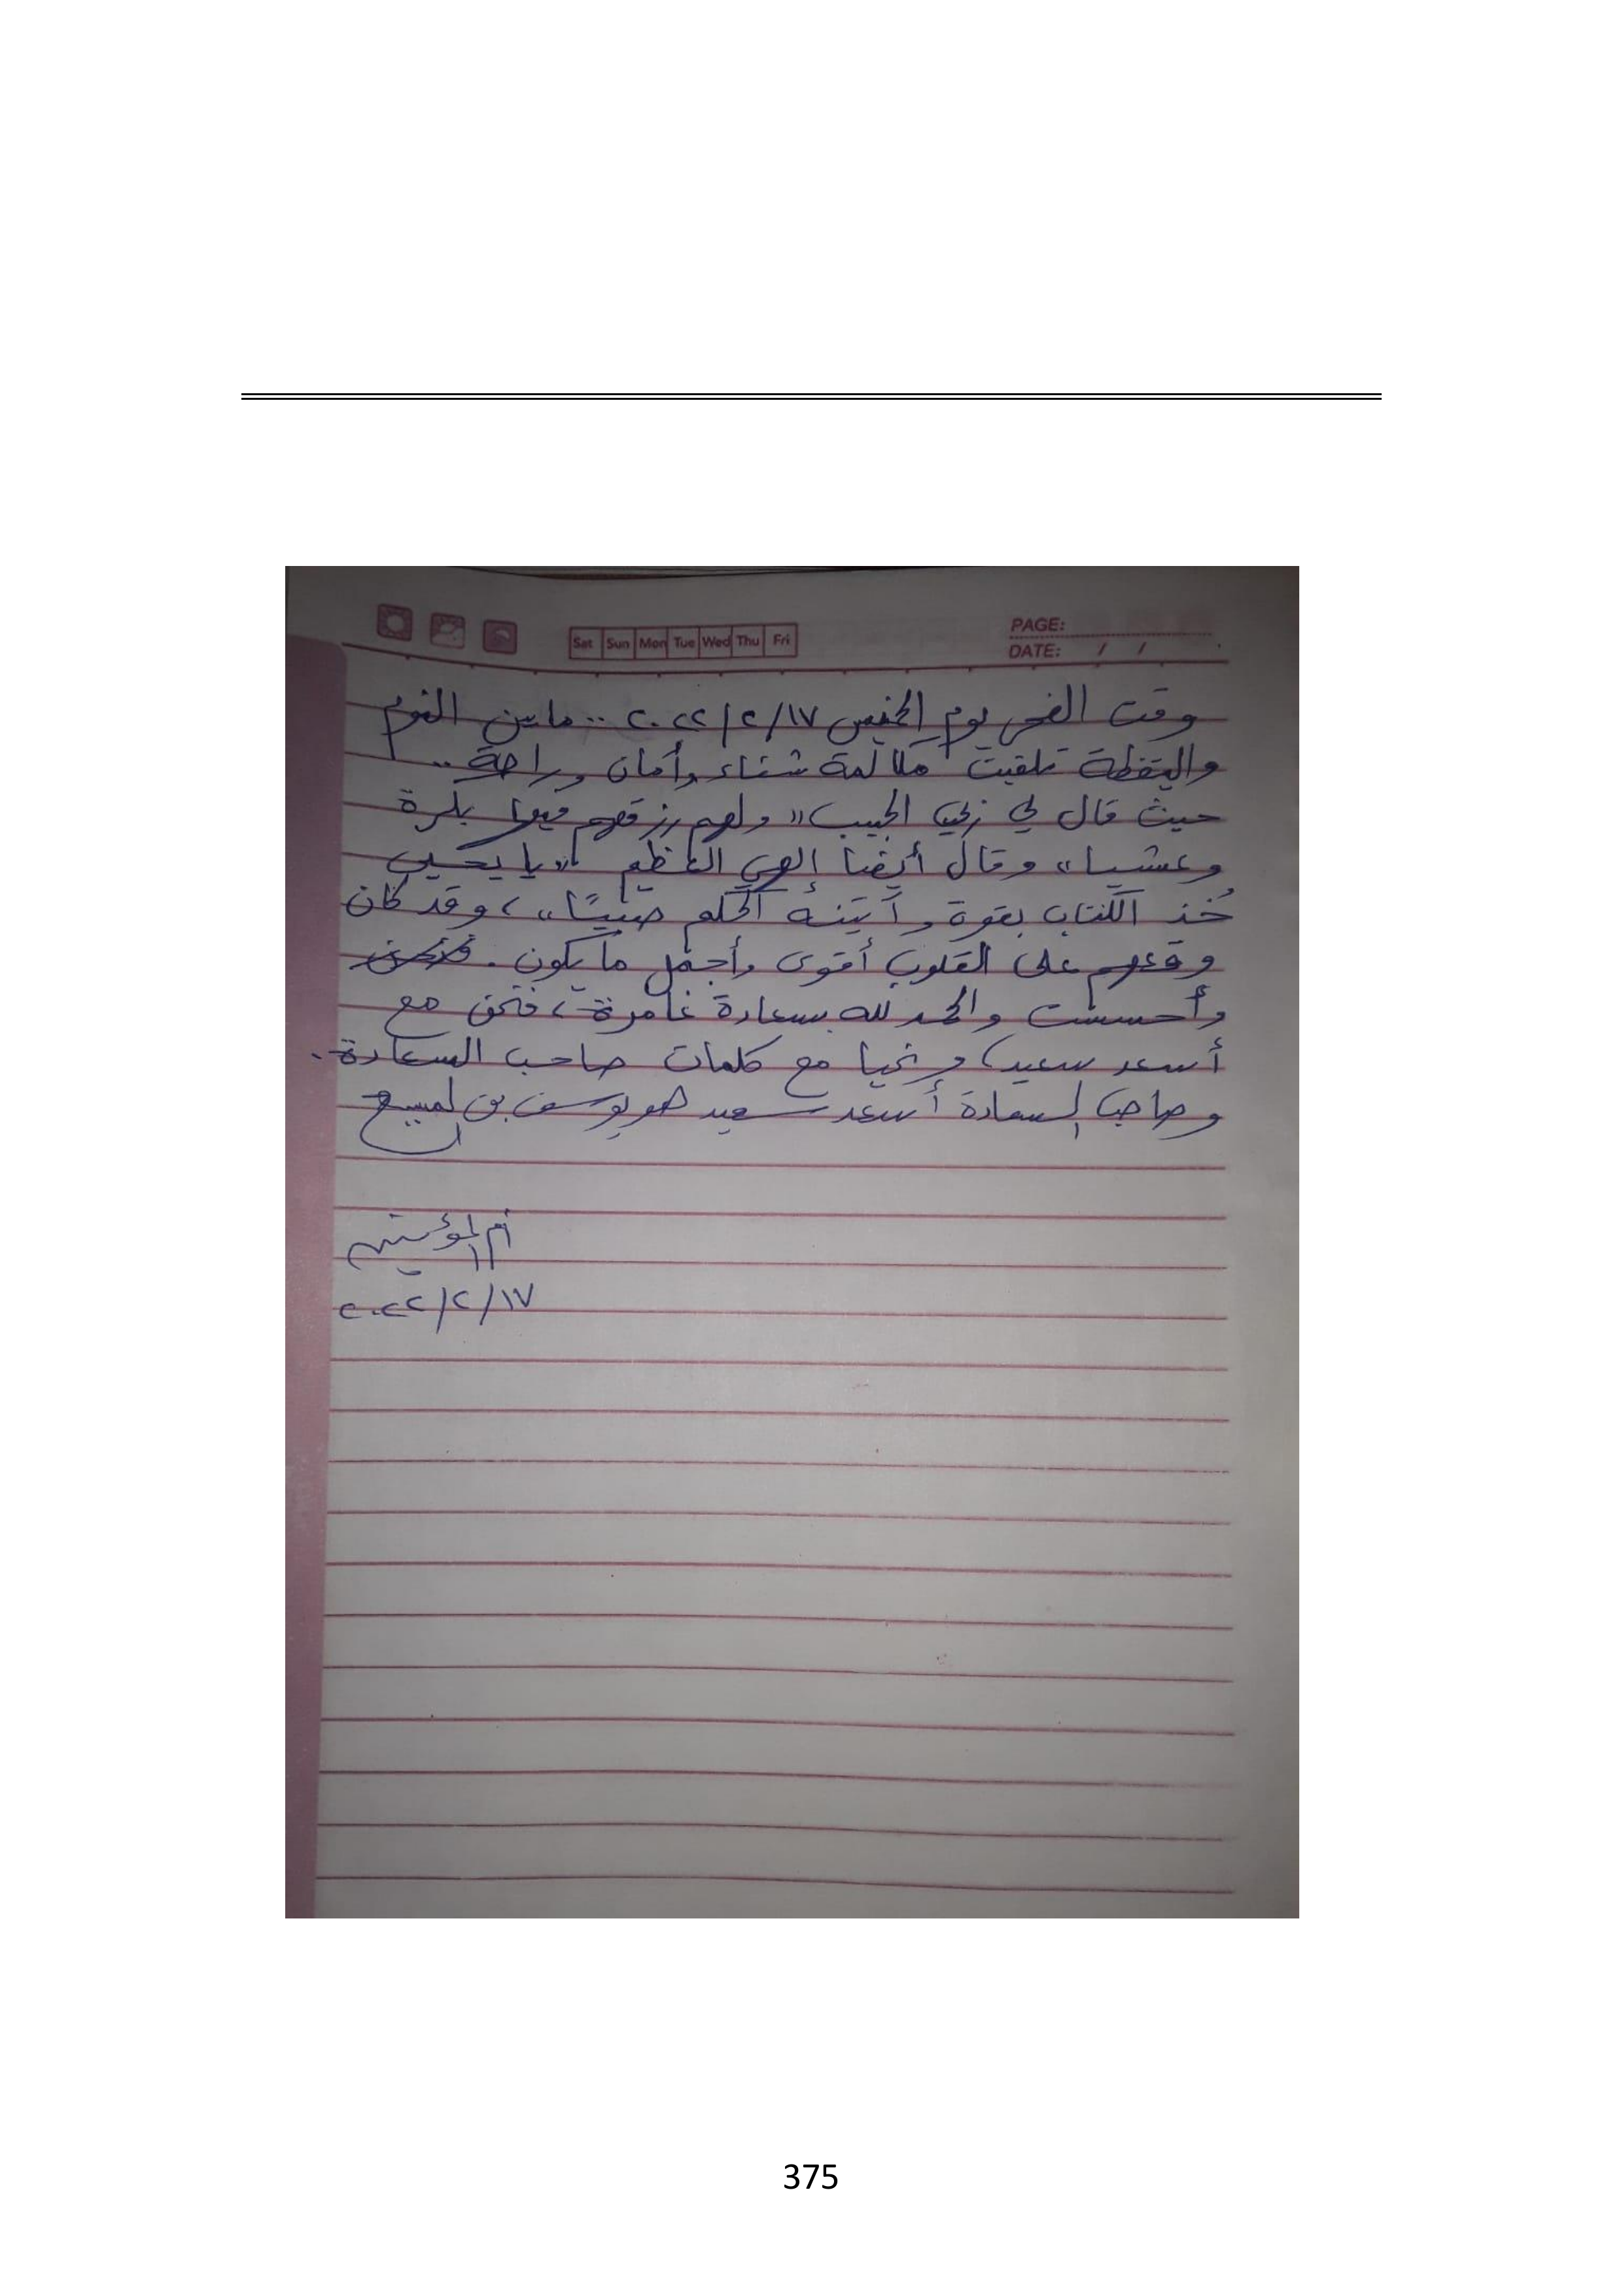 Sat Sun Mon Tue Wed Thu Fri
PAGE:
DATE: / /
وقت الفجر يوم الخميس ١٧/٢/٢٠٢٢ .. ما بين النوم
واليقظة تلقيت مكالمة شفاء وأمان وراحة ..
حيث قال لي ربي الحبيب "ولهم رزقهم فيها بكرة
وعشيا" وقال أيضا إلهي العظيم "يا يحيى
خُذ الكتاب بقوة وآتينه الحكم صبيًا"، وقد كان
وقعهم على القلوب أقوى وأجمل ما يكون .
وأحسست والحمد لله بسعادة غامرة، فنحن مع
أسعد سعيد، ونحيا مع كلمات صاحب السعادة .
وصاحب السعادة أسعد سعيد هو يوسف بن المسيح
أم المؤمنين
١٧/٢/٢٠٢٢
375